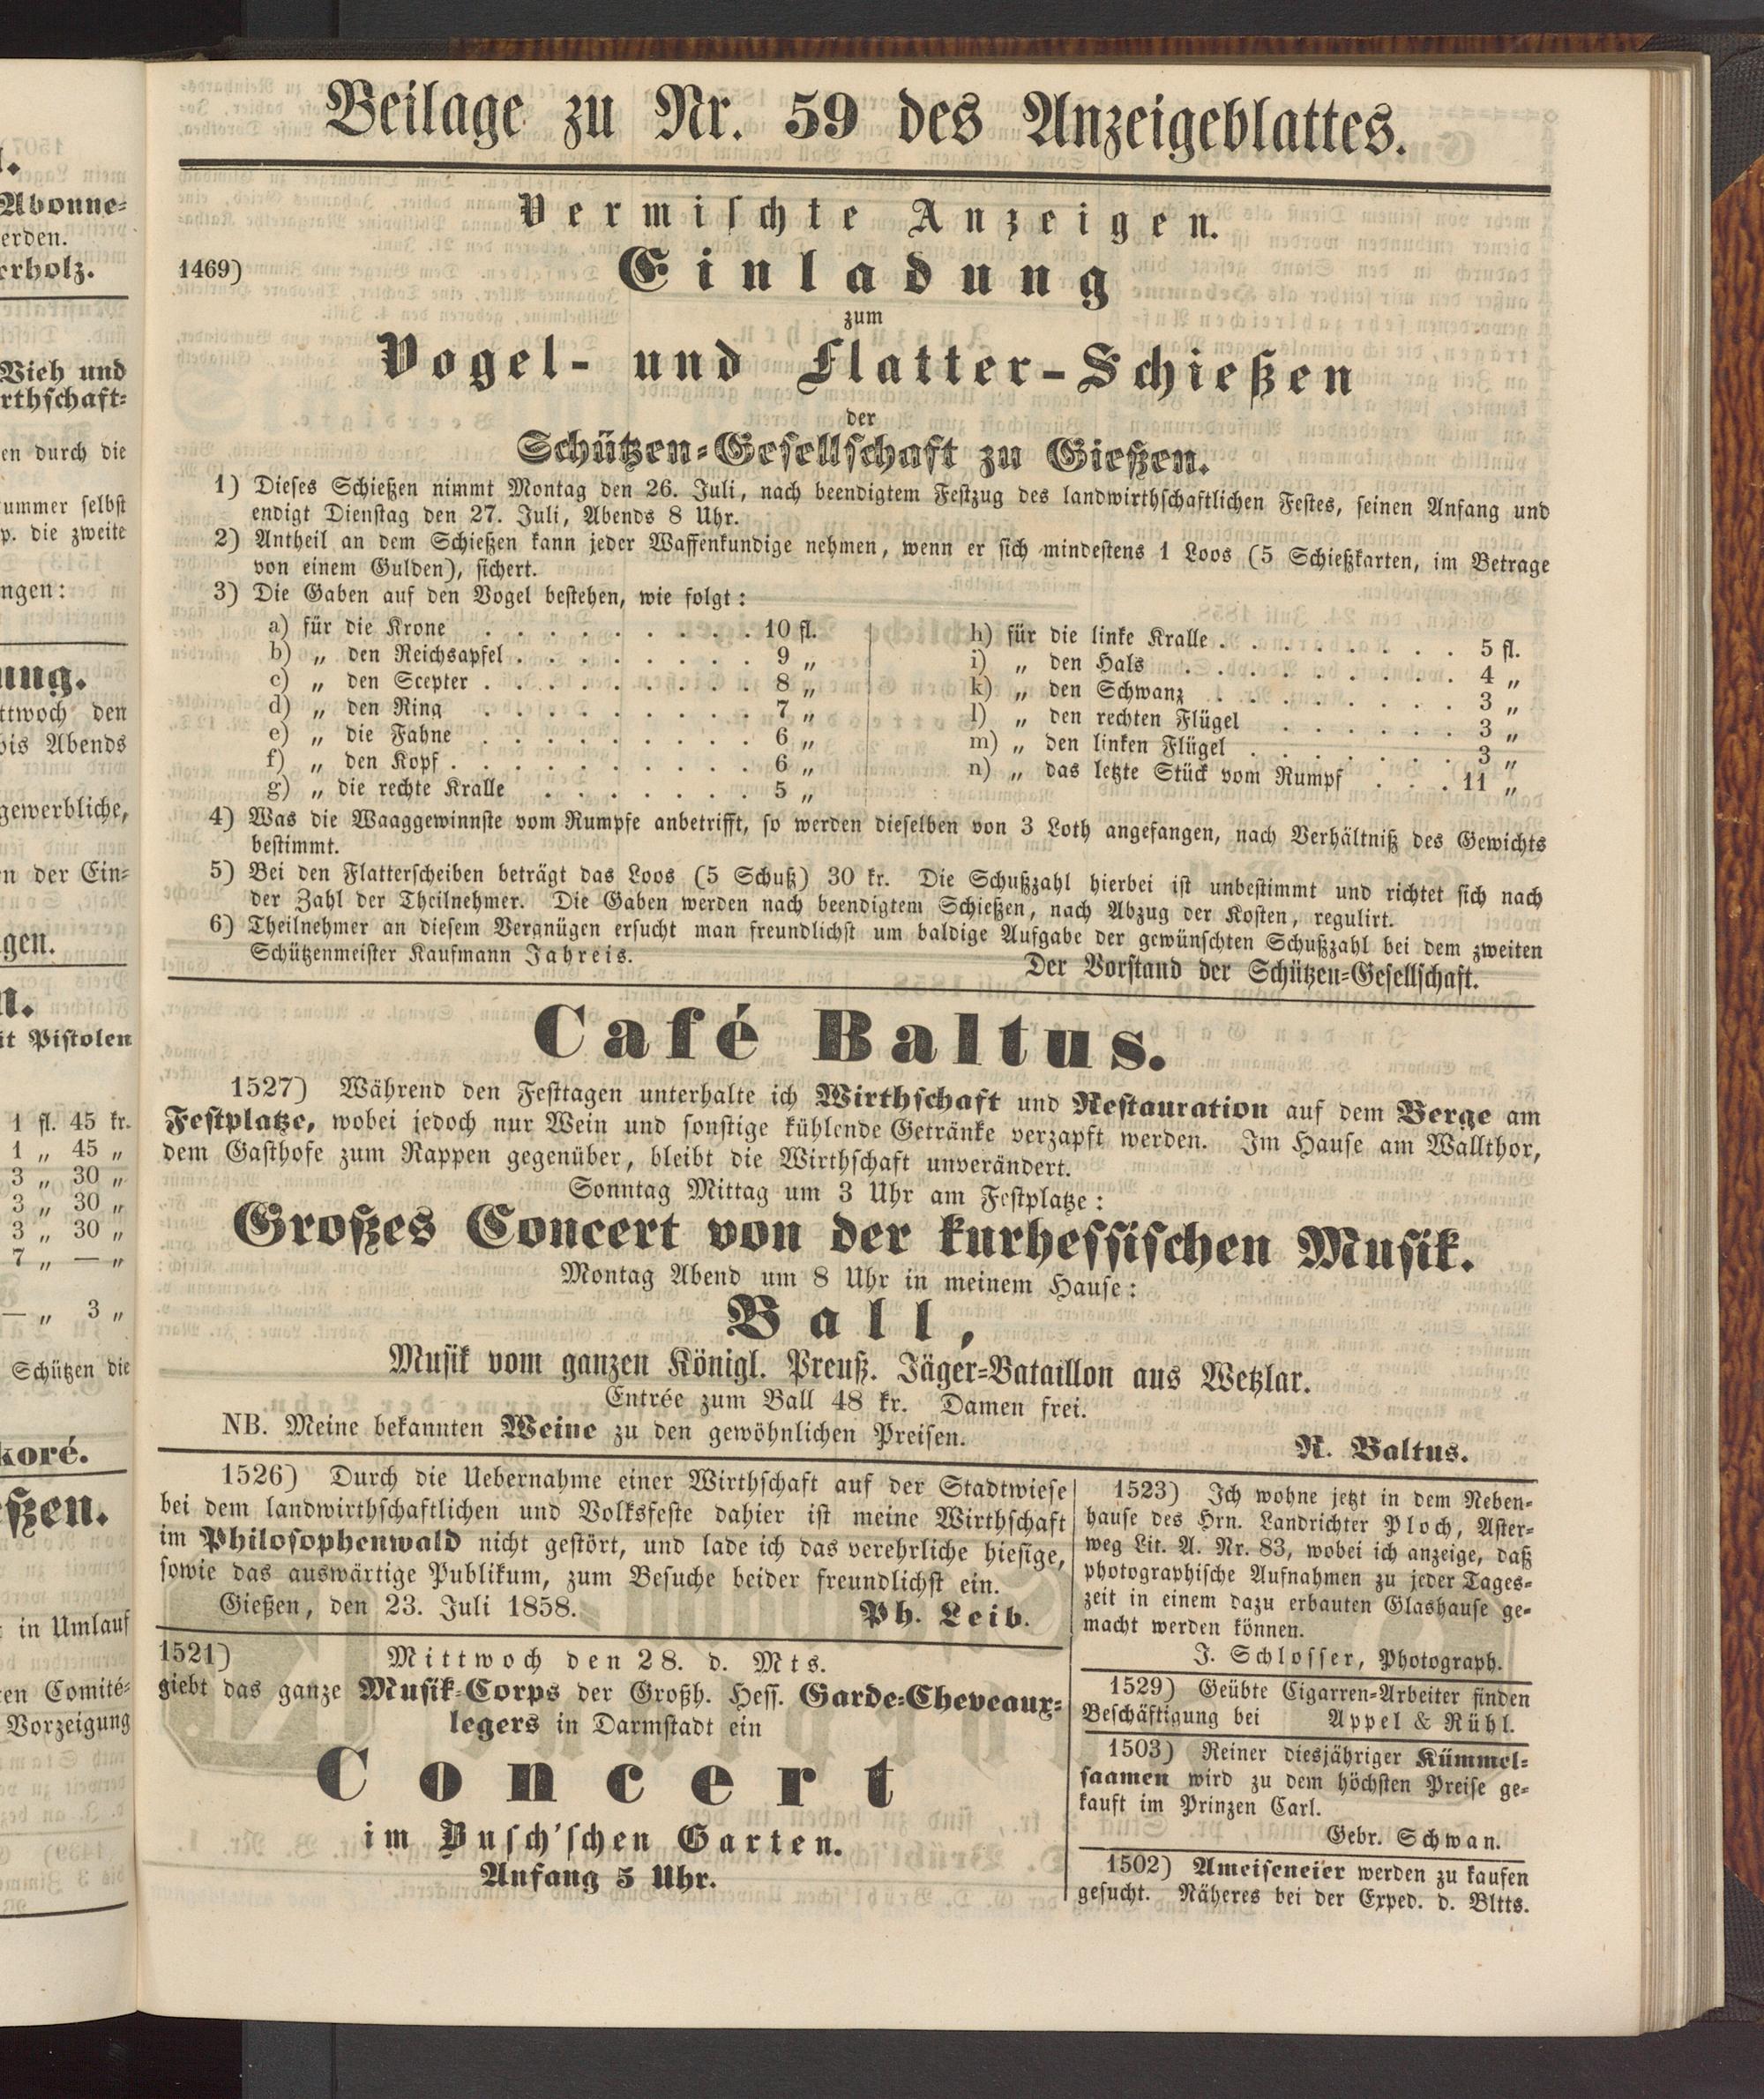 Abonne-
erden.
erholz.
Vieh und
rthschaft-
en durch die
ummer selbst
p. die zweite
ngen:
ung.
ttwoch den
bis Abends
gewerbliche,
n der Ein-
gen.
n.
it Pistolen
1 fl. 45 kr.
1 „ 45 „
3 „ 30 „
3 „ 30 „
3 „ 30 „
7 „ — „
— „ 3 „
Schützen die
koré.
eßen.
in Umlauf
ten Comité-
Vorzeigung
Beilage zu Nr. 59 des Anzeigeblattes.
Vermischte Anzeigen.
1469) Einladung
zum
Vogel- und Flatter-Schießen
der
Schützen-Gesellschaft zu Gießen.
1) Dieses Schießen nimmt Montag den 26. Juli, nach beendigtem Festzug des landwirthschaftlichen Festes, seinen Anfang und
endigt Dienstag den 27. Juli, Abends 8 Uhr.
2) Antheil an dem Schießen kann jeder Waffenkundige nehmen, wenn er sich mindestens 1 Loos (5 Schießkarten, im Betrage
von einem Gulden), sichert.
3) Die Gaben auf den Vogel bestehen, wie folgt:
a) für die Krone . . . . . . . . . 10 fl.
b) „ den Reichsapfel . . . . . . . . 9 „
c) „ den Scepter . . . . . . . . . 8 „
d) „ den Ring . . . . . . . . . 7 „
e) „ die Fahne . . . . . . . . . 6 „
f) „ den Kopf . . . . . . . . . . 6 „
g) „ die rechte Kralle . . . . . . . 5 „
h) für die linke Kralle . . . . . . . . 5 fl.
i) „ den Hals . . . . . . . . . 4 „
k) „ den Schwanz . . . . . . . . 3 „
l) „ den rechten Flügel . . . . . . 3 „
m) „ den linken Flügel . . . . . . . 3 „
n) „ das letzte Stück vom Rumpf . . . 11 „
4) Was die Waaggewinnste vom Rumpfe anbetrifft, so werden dieselben von 3 Loth angefangen, nach Verhältniß des Gewichts
bestimmt.
5) Bei den Flatterscheiben beträgt das Loos (5 Schuß) 30 kr. Die Schußzahl hierbei ist unbestimmt und richtet sich nach
der Zahl der Theilnehmer. Die Gaben werden nach beendigtem Schießen, nach Abzug der Kosten, regulirt.
6) Theilnehmer an diesem Vergnügen ersucht man freundlichst um baldige Aufgabe der gewünschten Schußzahl bei dem zweiten
Schützenmeister Kaufmann Jahreis.
Der Vorstand der Schützen-Gesellschaft.
Café Baltus.
1527) Während den Festtagen unterhalte ich Wirthschaft und Restauration auf dem Berge am
Festplatze, wobei jedoch nur Wein und sonstige kühlende Getränke verzapft werden. Im Hause am Wallthor,
dem Gasthofe zum Rappen gegenüber, bleibt die Wirthschaft unverändert.
Sonntag Mittag um 3 Uhr am Festplatze:
Großes Concert von der kurhessischen Musik.
Montag Abend um 8 Uhr in meinem Hause:
Ball,
Musik vom ganzen Königl. Preuß. Jäger-Bataillon aus Wetzlar.
Entrée zum Ball 48 kr. Damen frei.
NB. Meine bekannten Weine zu den gewöhnlichen Preisen.
R. Baltus.
1526) Durch die Uebernahme einer Wirthschaft auf der Stadtwiese
bei dem landwirthschaftlichen und Volksfeste dahier ist meine Wirthschaft
im Philosophenwald nicht gestört, und lade ich das verehrliche hiesige,
sowie das auswärtige Publikum, zum Besuche beider freundlichst ein.
Gießen, den 23. Juli 1858. Ph. Leib.
1521) Mittwoch den 28. d. Mts.
giebt das ganze Musik-Corps der Großh. Hess. Garde-Cheveaux-
legers in Darmstadt ein
Concert
im Busch'schen Garten.
Anfang 5 Uhr.
1523) Ich wohne jetzt in dem Neben-
hause des Hrn. Landrichter Ploch, Aster-
weg Lit. A. Nr. 83, wobei ich anzeige, daß
photographische Aufnahmen zu jeder Tages-
zeit in einem dazu erbauten Glashause ge-
macht werden können.
J. Schlosser, Photograph.
1529) Geübte Cigarren-Arbeiter finden
Beschäftigung bei Appel & Rühl.
1503) Reiner diesjähriger Kümmel-
saamen wird zu dem höchsten Preise ge-
kauft im Prinzen Carl.
Gebr. Schwan.
1502) Ameiseneier werden zu kaufen
gesucht. Näheres bei der Exped. d. Bltts.